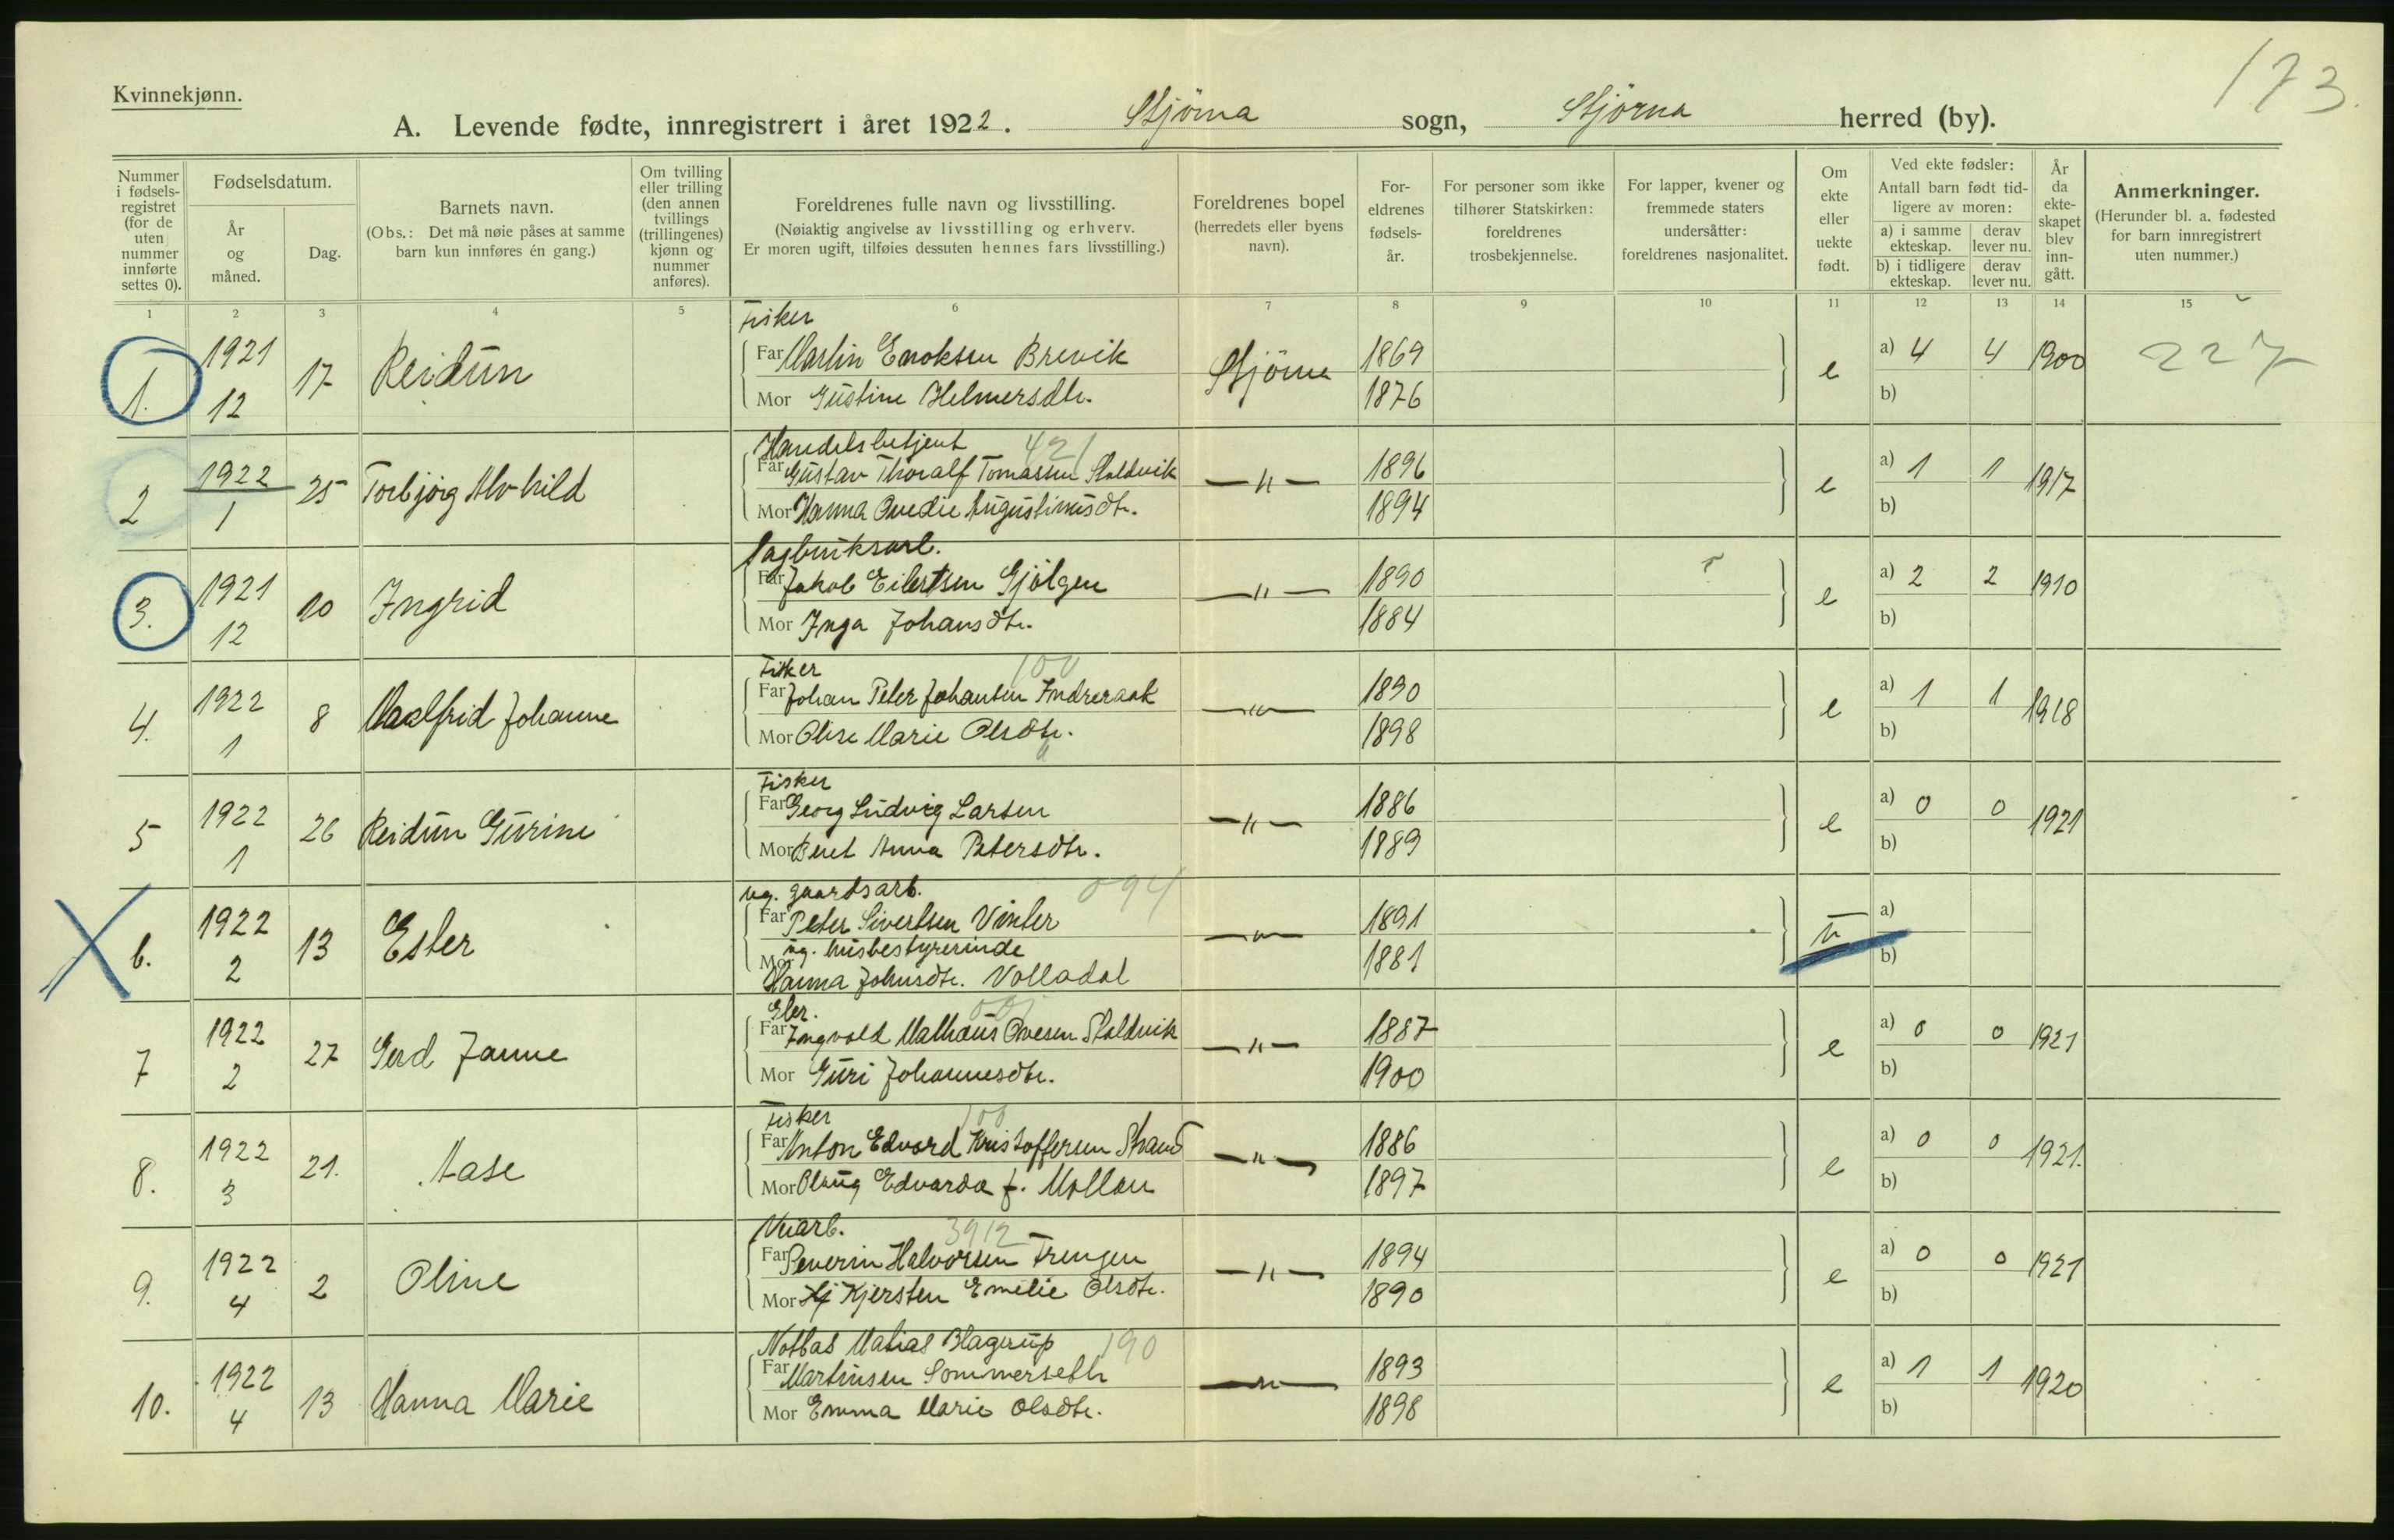 173.
Kvinnekjønn.
A. Levende fødte, innregistrert i året 1922. Stjörna sogn, Stjörna herred (by).
Nummer i fødsels-registret (for de uten nummer innførte settes 0).
Fødselsdatum.
År og måned.
Dag.
Barnets navn.
(Obs.: Det må nøie påses at samme barn kun innføres én gang.)
Om tvilling eller trilling (den annen tvillings (trillingenes) kjønn og nummer anføres).
Foreldrenes fulle navn og livsstilling.
(Nøiaktig angivelse av livsstilling og erhverv.
Er moren ugift, tilføies dessuten hennes fars livsstilling.)
Foreldrenes bopel (herredets eller byens navn).
For-eldrenes fødsels-år.
For personer som ikke tilhører Statskirken: foreldrenes trosbekjennelse.
For lapper, kvener og fremmede staters undersåtter: foreldrenes nasjonalitet.
Om ekte eller uekte født.
Ved ekte fødsler:
Antall barn født tid-ligere av moren:
a) i samme ekteskap. derav lever nu.
b) i tidligere ekteskap. derav lever nu.
År da ekte-skapet blev inn-gått.
Anmerkninger.
(Herunder bl. a. fødested for barn innregistrert uten nummer.)
1 2 3 4 5 6 7 8 9 10 11 12 13 14 15
Fisker
1. 1921 12 17 Reidun Far Martin Enoksen Brevik Stjörna 1869 e a) 4 4 1900 227
Mor Gustine Helmersdtr. 1876 b)
Handelsbetjent 421
2 1922 1 25 Torbjörg Alvhild Far Gustav Thoralf Tomassen Stoldvik —"— 1896 e a) 1 1 1917
Mor Hanna Ovedie Augustinusdtr. 1894 b)
Sagbruksarb.
3. 1921 12 10 Ingrid Far Jakob Eilertsen Gjölgen —"— 1890 e a) 2 2 1910
Mor Inga Johansdtr. 1884 b)
Fisker 100
4. 1922 1 8 Maalfrid Johanne Far Johan Peter Johansen Indreraak —"— 1890 e a) 1 1 1918
Mor Olise Marie Olsdtr. 1898 b)
Fisker
5 1922 1 26 Reidun Gurine Far Georg Ludvig Larsen —"— 1886 e a) 0 0 1921
Mor Beret Anna Petersdtr. 1889 b)
ug. gaardsarb. 094
6. 1922 2 13 Ester Far Peter Sivertsen Vinter —"— 1891 u a)
ug. husbestyrerinde
Mor Hanna Johnsdtr. Volladal 1881 b)
Eier.
7 1922 2 27 Gerd Janne Far Ingvald Mathæus Ovesen Stoldvik —"— 1887 e a) 0 0 1921
Mor Guri Johannesdtr. 1900 b)
Fisker 100
8. 1922 3 21. Aase Far Anton Edvard Kristoffersen Strand —"— 1886 e a) 0 0 1921.
Mor Olaug Edvarda f. Mollan 1897 b)
Veiarb. 3912
9. 1922 4 2 Oline Far Severin Halvorsen Frengen —"— 1894 e a) 0 0 1921
Mor Kjersten Emelie Olsdtr. 1890 b)
Notbas Matias Hagerup 190
10. 1922 4 13 Hanna Marie Far Martinsen Sommerseth —"— 1893 e a) 1 1 1920
Mor Emma Marie Olsdtr. 1898 b)